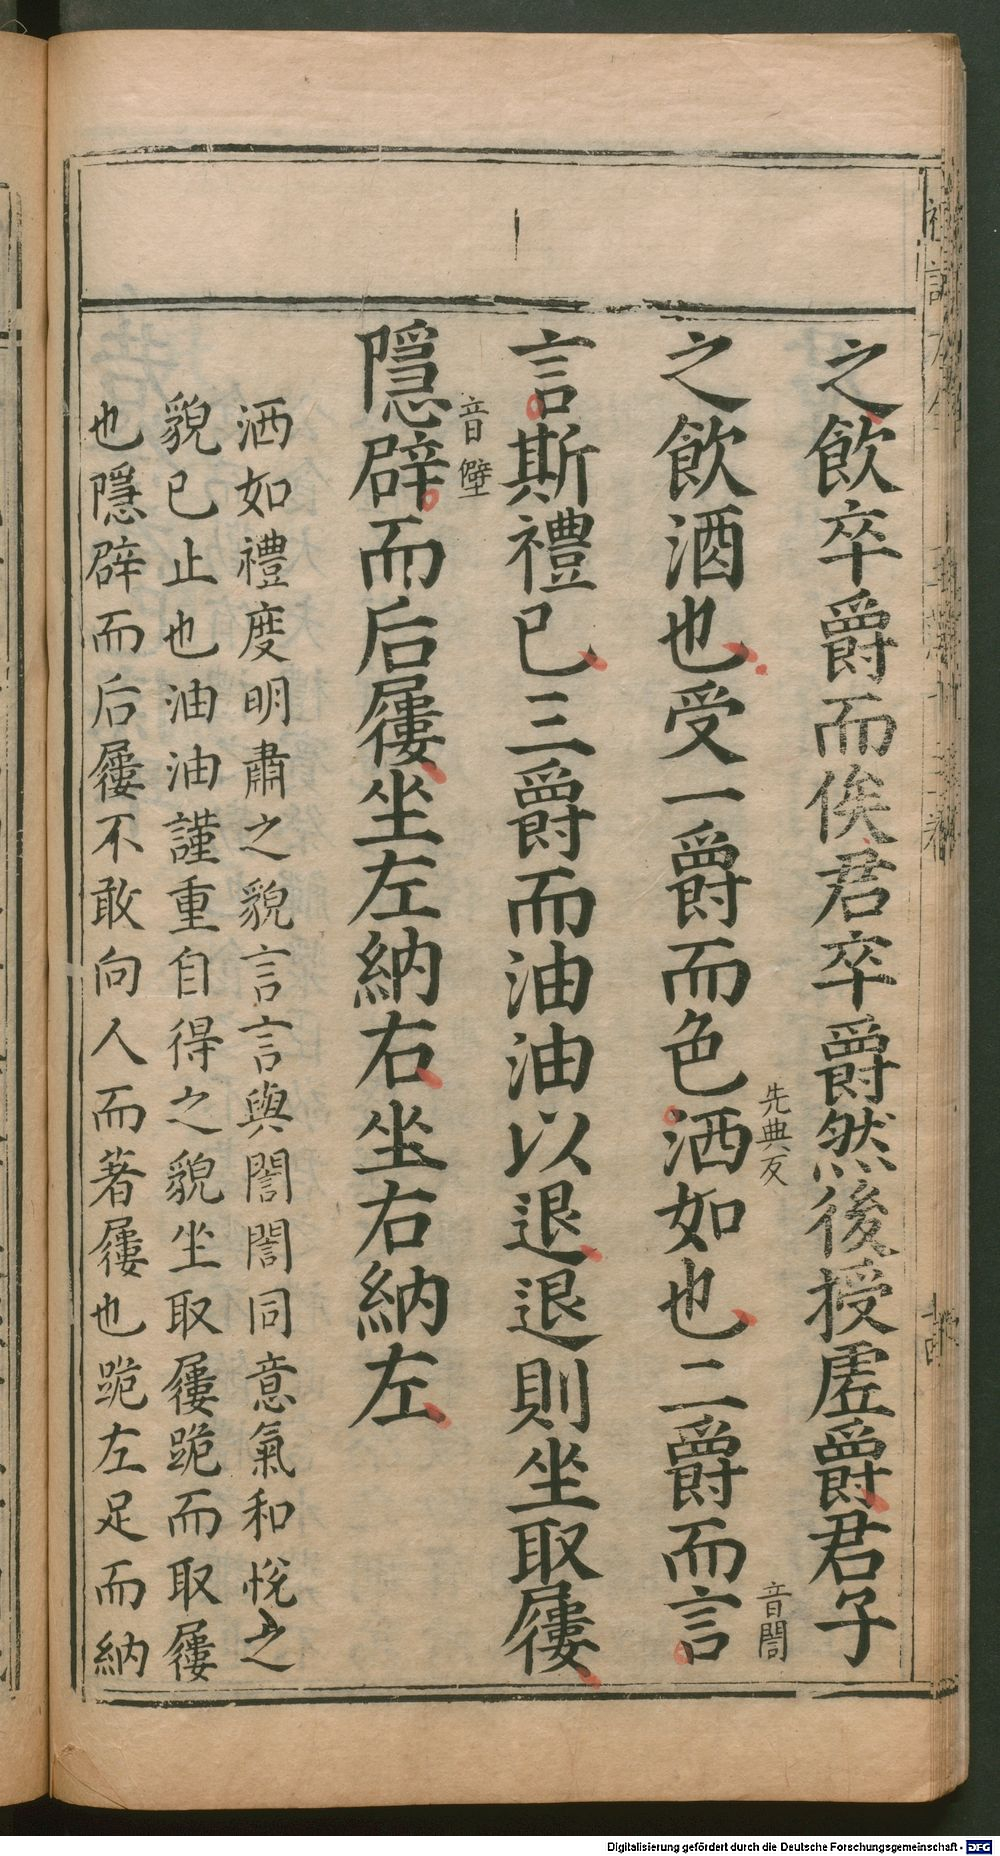 之飲卒爵而俟君卒爵然後授虛爵君子
之飲酒也受一爵而色洒如也二爵而言
先典反
音誾
言斯禮已三爵而油油以退退則坐取屨
隱辟而后屨坐左納右坐右納左
音僻
洒如禮度明肅之貌言言與誾誾同意氣和悅之
貌已止也油油謹重自得之貌坐取屨跪而取屨
也隱辟而后屨不敢向人而著屨也跪左足而納
Digitalisierung gefördert durch die Deutsche Forschungsgemeinschaft - DFG